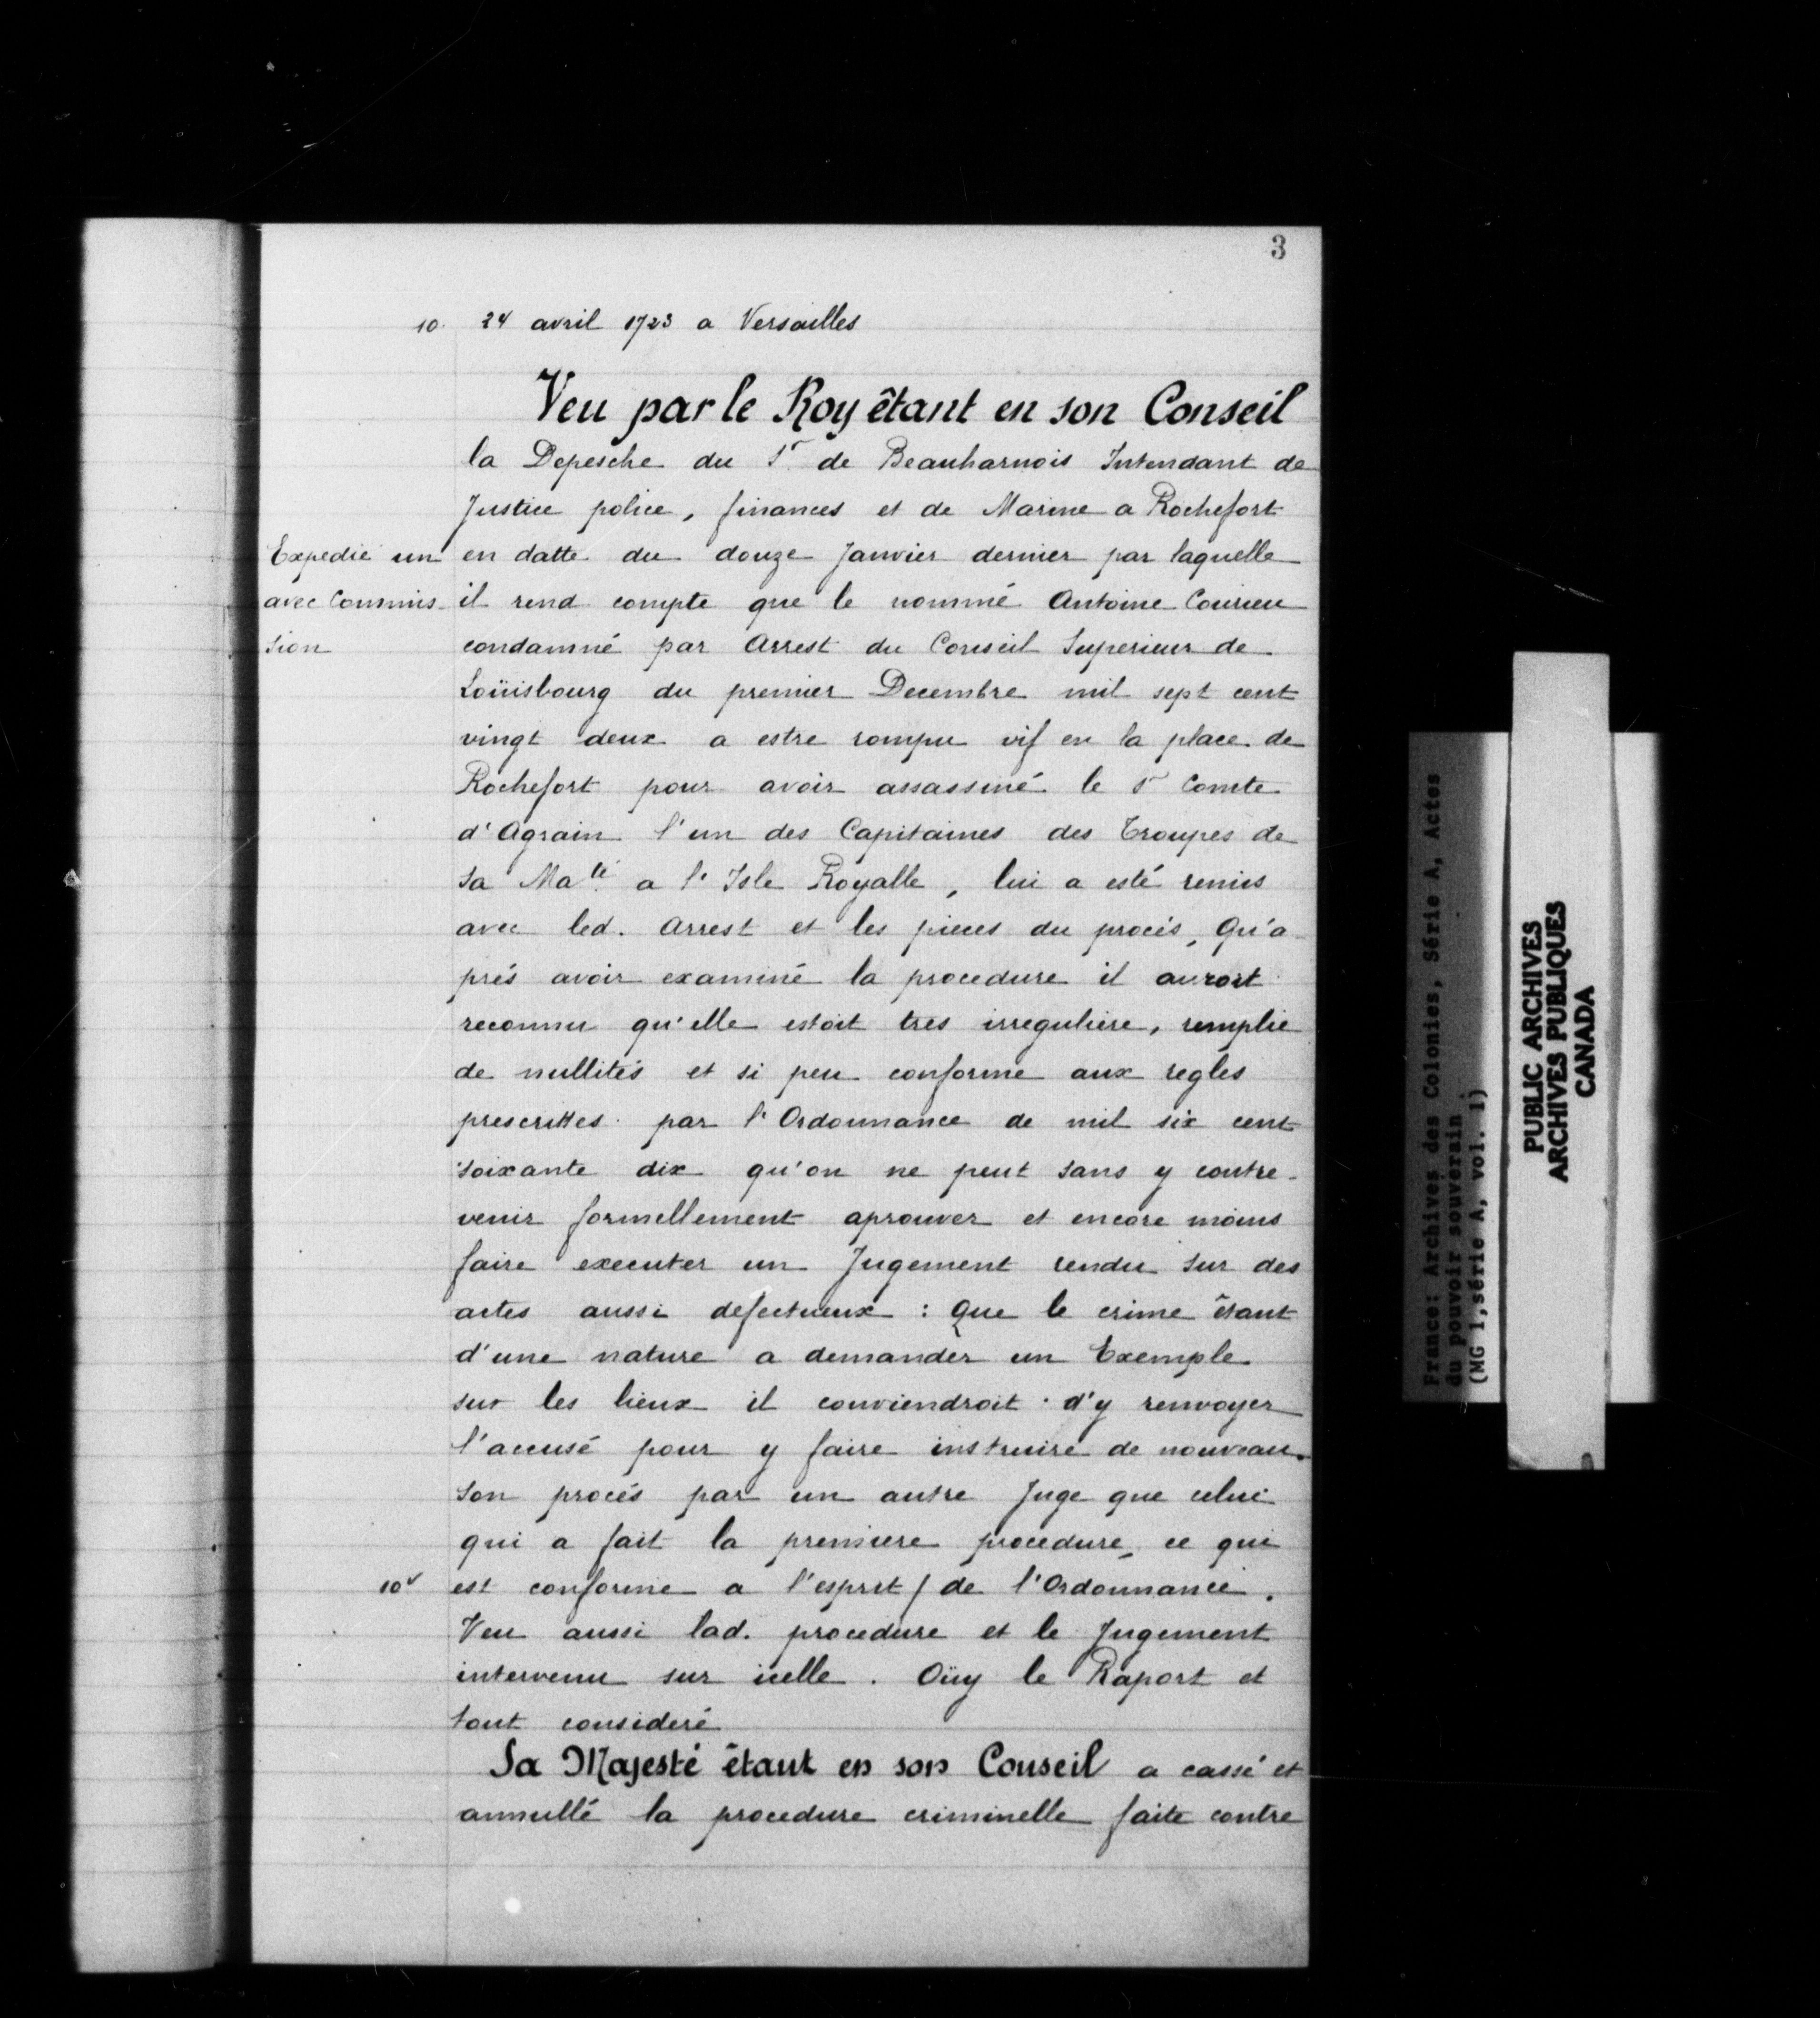 3
10. 24 avril 1723 a Versailles
Veu par le Roy êtant en son Conseil
la Depesche du Sr. de Beauharnois Intendant de
Justice police, finances et de Marine a Rochefort
Expedié un
avec Commis-
sion
en datte du douze Janvier dernier par laquelle
il rend compte que le nommé Antoine Courieu
condamné par Arrest du Conseil Superieur de
Loüisbourg du premier Decembre mil sept cent
vingt deux a estre rompu vif en la place de
Rochefort pour avoir assassiné le Sr Comte
d'Agrain l'un des Capitaines des Troupes de
Sa Maté a l'Isle Royalle, lui a esté remis
avec led. Arrest et les pieces du procés, Qu'a-
prés avoir examiné la procedure il auroit
reconnu qu'elle estoit tres irreguliere, remplie
de nullités et si peu conforme aux regles
prescrittes par l'Ordonnance de mil six cent
soixante dix qu'on ne peut sans y contre-
venir formellement aprouver et encore moins
faire executer un Jugement rendu sur des
actes aussi defectueux : Que le crime êtant
d'une nature a demander un Exemple
sur les lieux il conviendroit d'y renvoyer
l'accusé pour y faire instruire de nouveau
son procés par un autre Juge que celui
qui a fait la premiere procedure, ce qui
10v est conforme a l'esprit / de l'Ordonnance.
Veu aussi lad. procedure et le Jugement
intervenu sur icelle. Oüy le Raport et
tout consideré
Sa Majesté êtant en son Conseil a cassé et
annullé la procedure criminelle faite contre
France: Archives des Colonies, Série A, Actes
du pouvoir souverain
(MG 1, série A, vol. 1)
PUBLIC ARCHIVES
ARCHIVES PUBLIQUES
CANADA